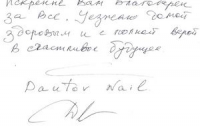 Искренне Вам благодарен
за все. Уезжаю домой
здоровым и с полной верой
в счастливое будущее
Dautov Nail